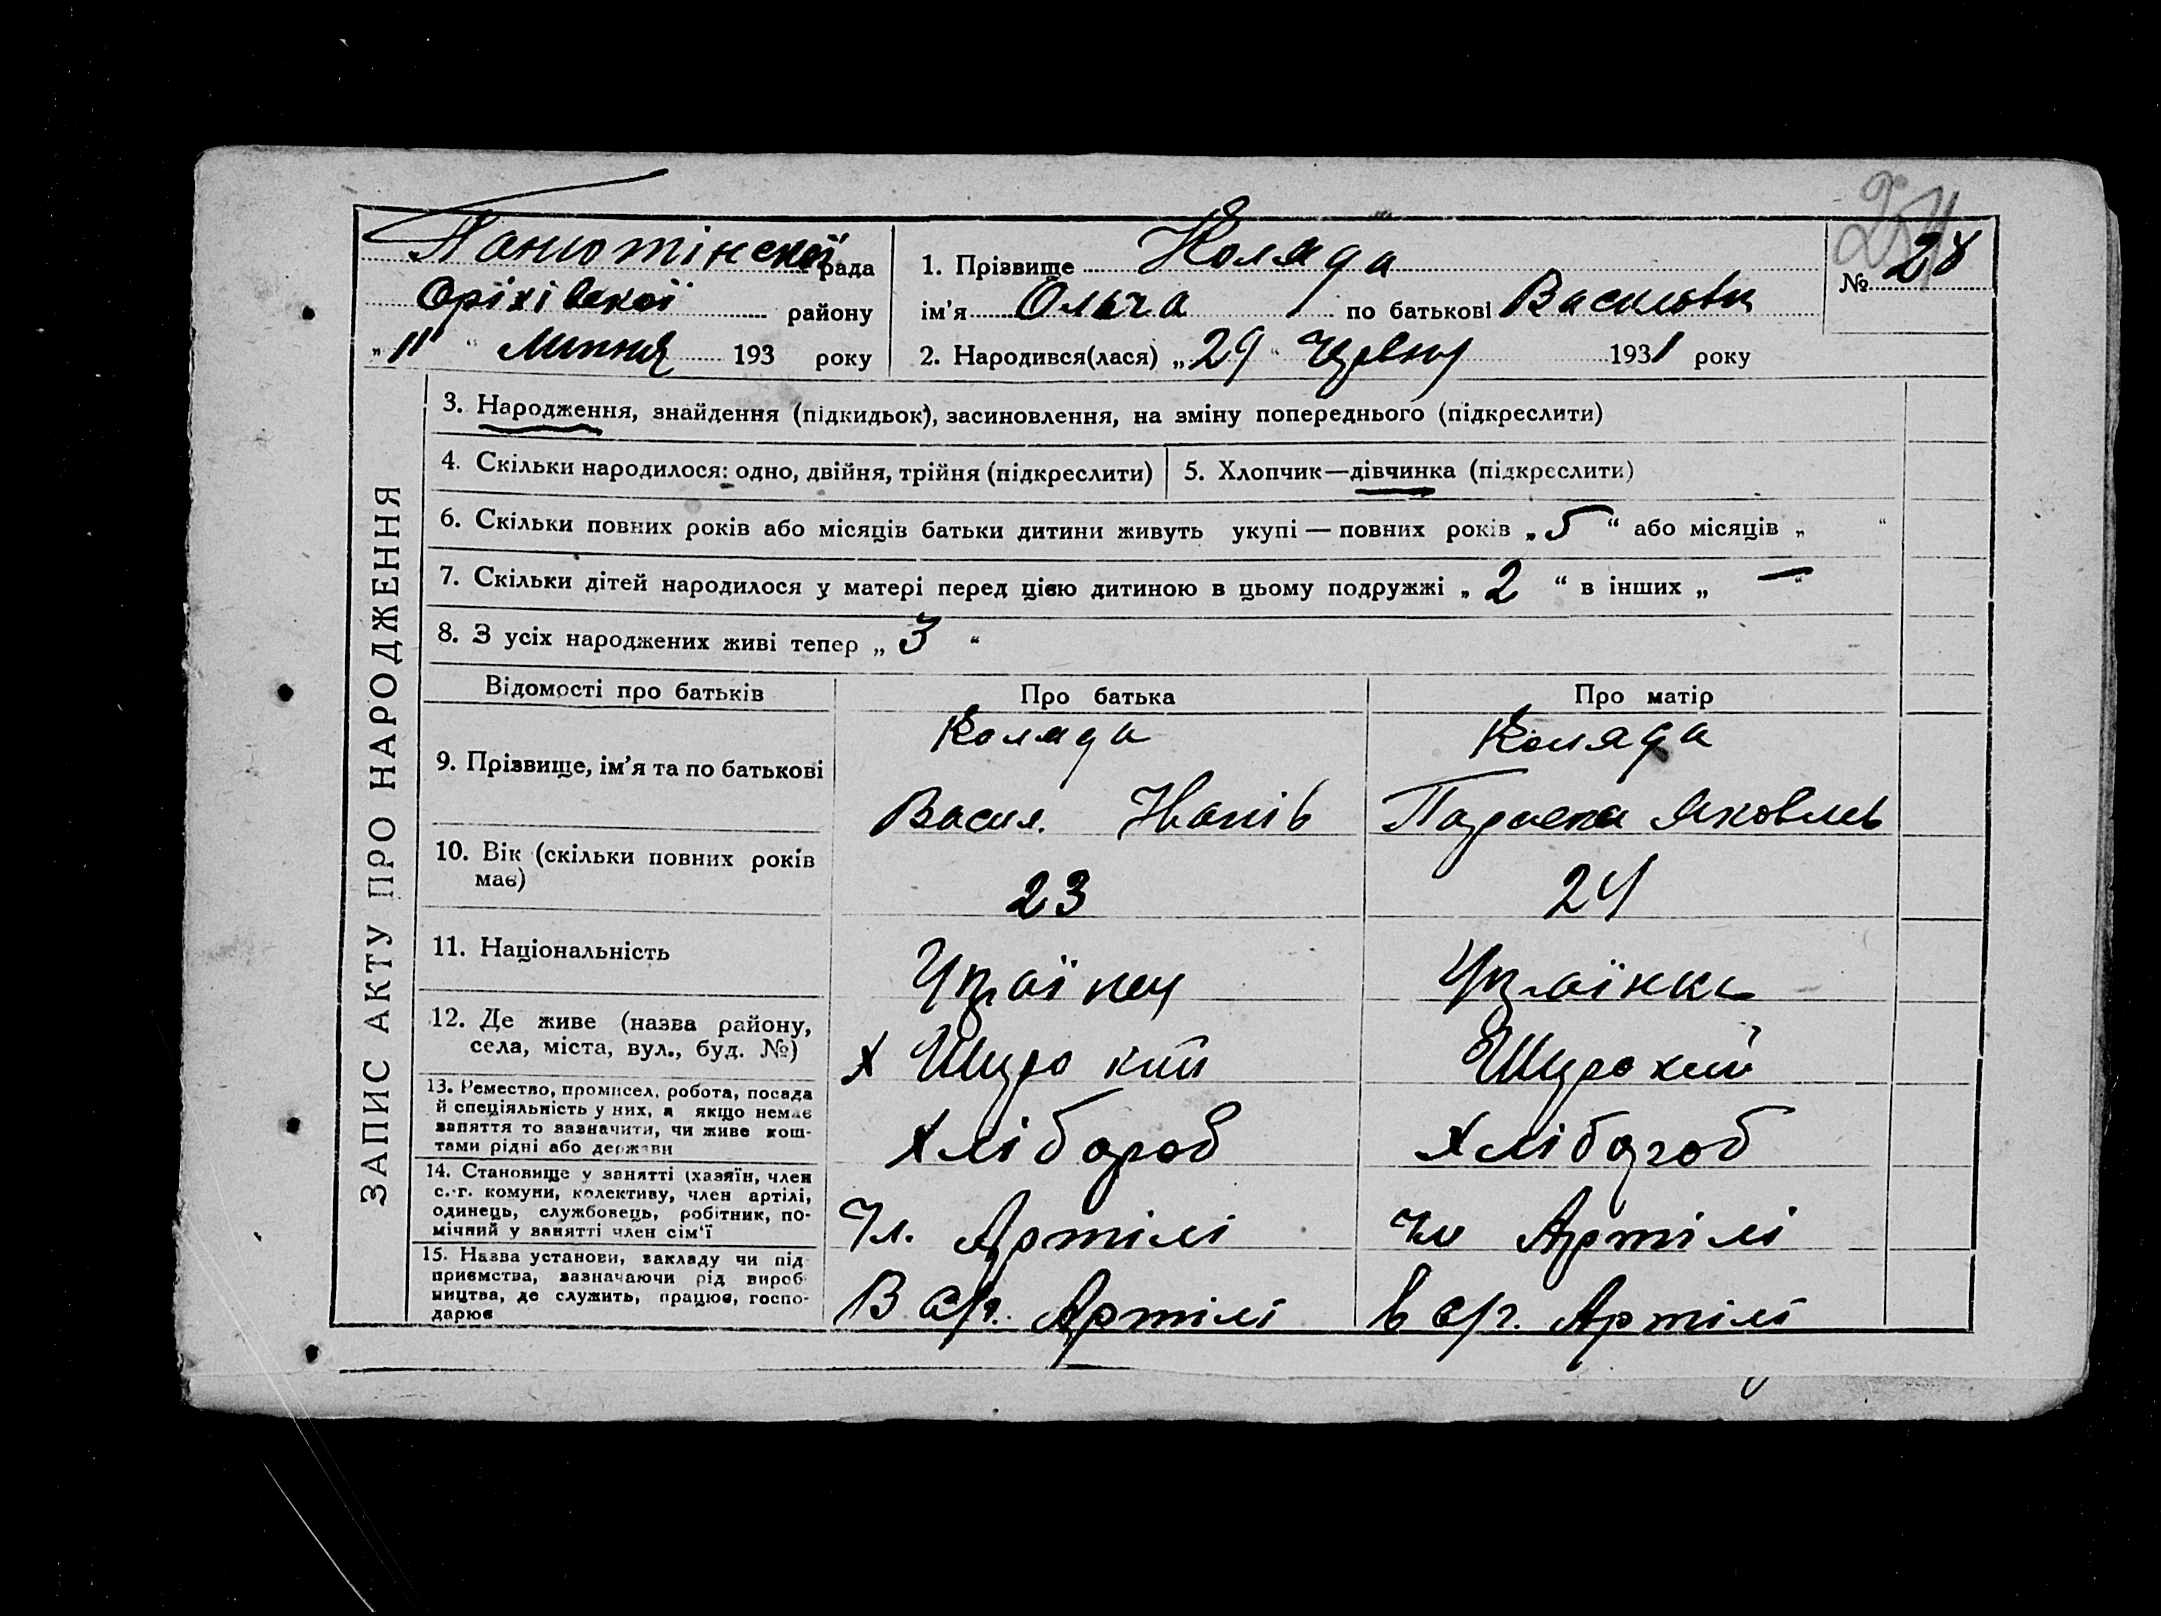 251
Панютінскої рада
Оріхівскої району
„11“ Липня 193 року
1. Прізвище Коляда
№ 28
ім'я Ольга по батькові Василовн
2. Народився(лася) „29“ Червня 1931 року
ЗАПИС АКТУ ПРО НАРОДЖЕННЯ
3. Народження, знайдення (підкидьок), засиновлення, на зміну попереднього (підкреслити)
4. Скільки народилося: одно, двійня, трійня (підкреслити)
5. Хлопчик—дівчинка (підкреслити)
6. Скільки повних років або місяців батьки дитини живуть укупі — повних років „5“ або місяців „ “
7. Скільки дітей народилося у матері перед цією дитиною в цьому подружжі „2“ в інших „—“
8. З усіх народжених живі тепер „3“
Відомості про батьків
Про батька
Про матір
9. Прізвище, ім'я та по батькові
Коляда
Васил.
Коляда
Параска Яковлів
10. Вік (скільки повних років
має)
23
24
11. Національність
Украінец
Украінка
12. Де живе (назва району,
села, міста, вул., буд. №)
х Широкий
Широкий
13. Ремество, промисел, робота, посада
й спеціяльність у них, а якщо немає
заняття то зазначити, чи живе кош-
тами рідні або держави
Хлібороб
Хлібороб
14. Становище у занятті (хазяїн, член
с.-г. комуни, колективу, член артілі,
одинець, службовець, робітник, по-
мічний у занятті член сім'ї
Чл. Артілі
Чл Артілі
15. Назва установи, закладу чи під-
приємства, зазначаючи рід вироб-
ництва, де служить, працює, госпо-
дарює
В с/г. Артілі
в с/г. Артілі